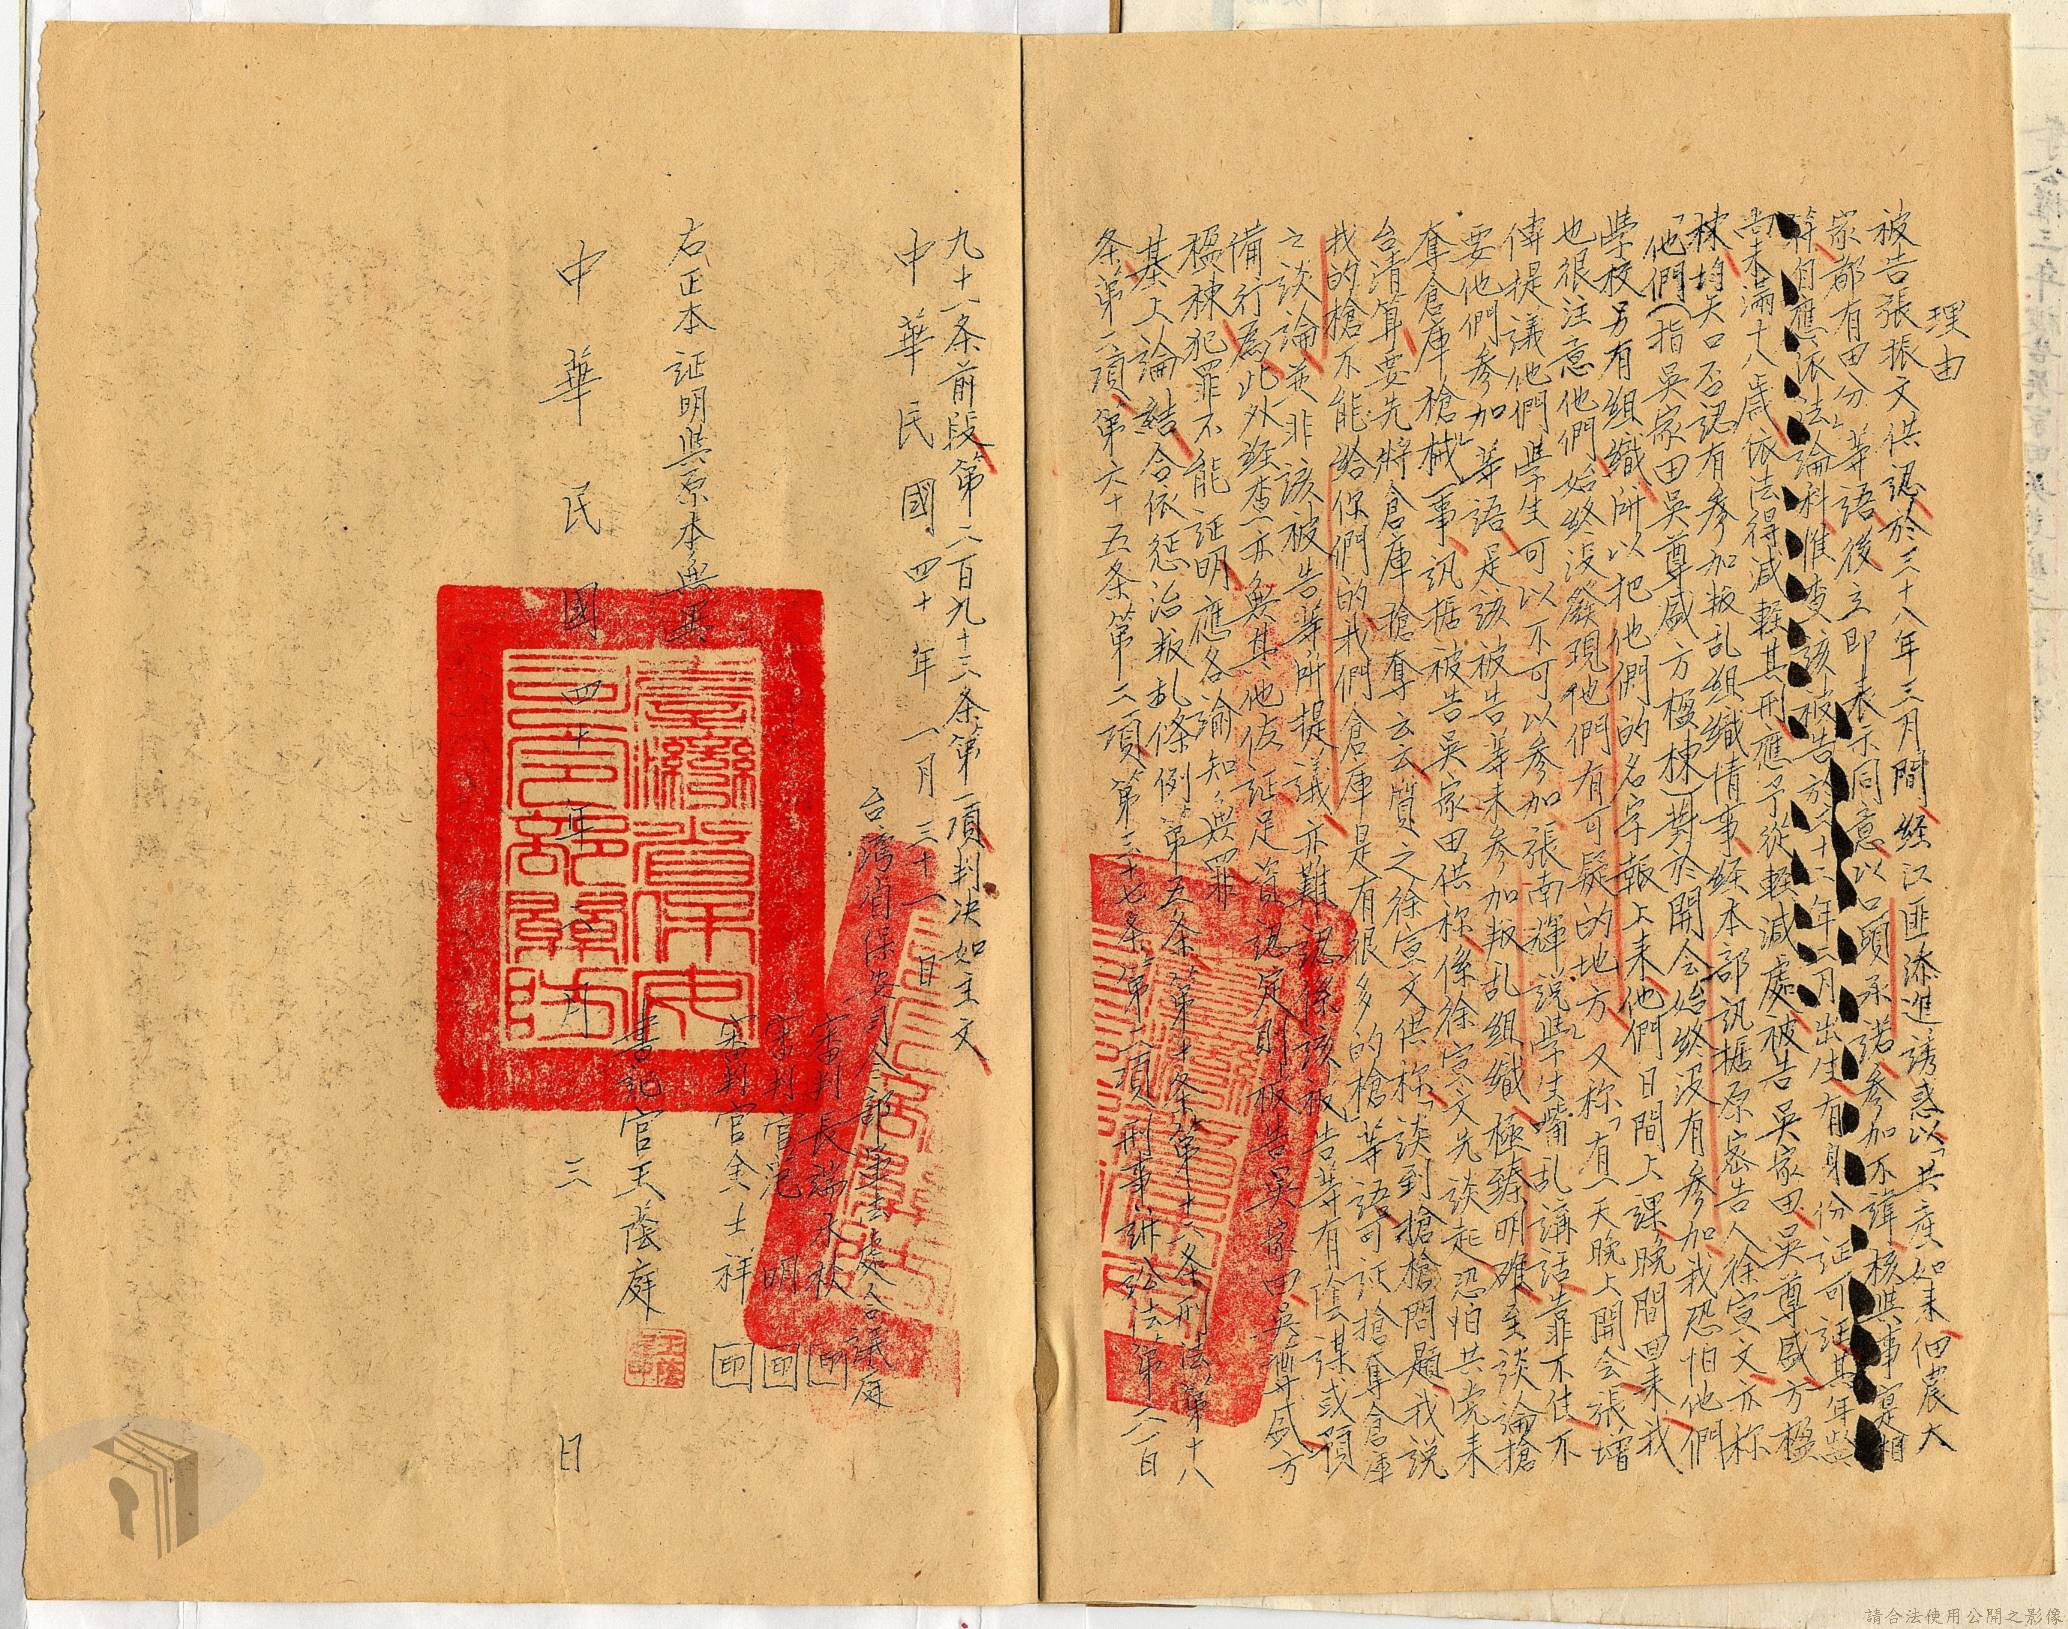 理由
被告張振文供認於三十八年三月間経江匪添進誘惑以「共產如来佃農大
家都有田分」等語後立即表示同意以口頭承諾參加不諱核與事寔相
符自應依法論科惟查該被告於二十二年二月出生有身份証可証其年尚
未滿十八歲依法得減輕其刑應予從輕減處被告吳家田吳尊盛方楹
棟均矢口否認有參加叛乱組織情事経本部訊據原密告人徐宣文亦称
「他們(指吳家田吳尊盛方楹棟)對於開会始終沒有參加我恐怕他們
學校另有組織所以把他們的名字報上来他們日間上課晚間回来我
也很注意他們始終沒發現他們有可疑的地方」又称「有一天晚上開会張增
傳提議他們學生可以不可以參加張南輝說學生嘴乱講話靠不住不
要他們參加」等語是該被告等未參加叛乱組織極臻明確至談論搶
奪倉庫槍械一事訊據被告吳家田供称係徐宣文先談起恐怕共党来
台清算要先將倉庫槍奪云云質之徐宣文供称「談到搶槍問題我說
我的槍不能給你們的我們倉庫是有很多的槍」等語可証搶奪倉庫
之談論並非該被告等所提議亦難認係該被告等有陰謀或預
備行為此外経查亦無其他佐証足資認定則被告吳家田吳尊盛方
楹棟犯罪不能証明應各諭知無罪
基上論結合依惩治叛乱條例第五条第十条第十二条刑法第十八
条第二項第六十五条第二項第三十七条第二項刑事訴訟法第二百
九十一条前段第二百九十三条第一項判决如主文
中華民國四十年一月三十一日
台湾省保安司令部軍法處合議庭
審判長端木棪 印
審判官范明 印
審判官金士祥 印
右正本証明與原本無異
書記官王蔭庭
中華民國四十年二月三日
臺灣省保安司令部關防
請合法使用公開之影像